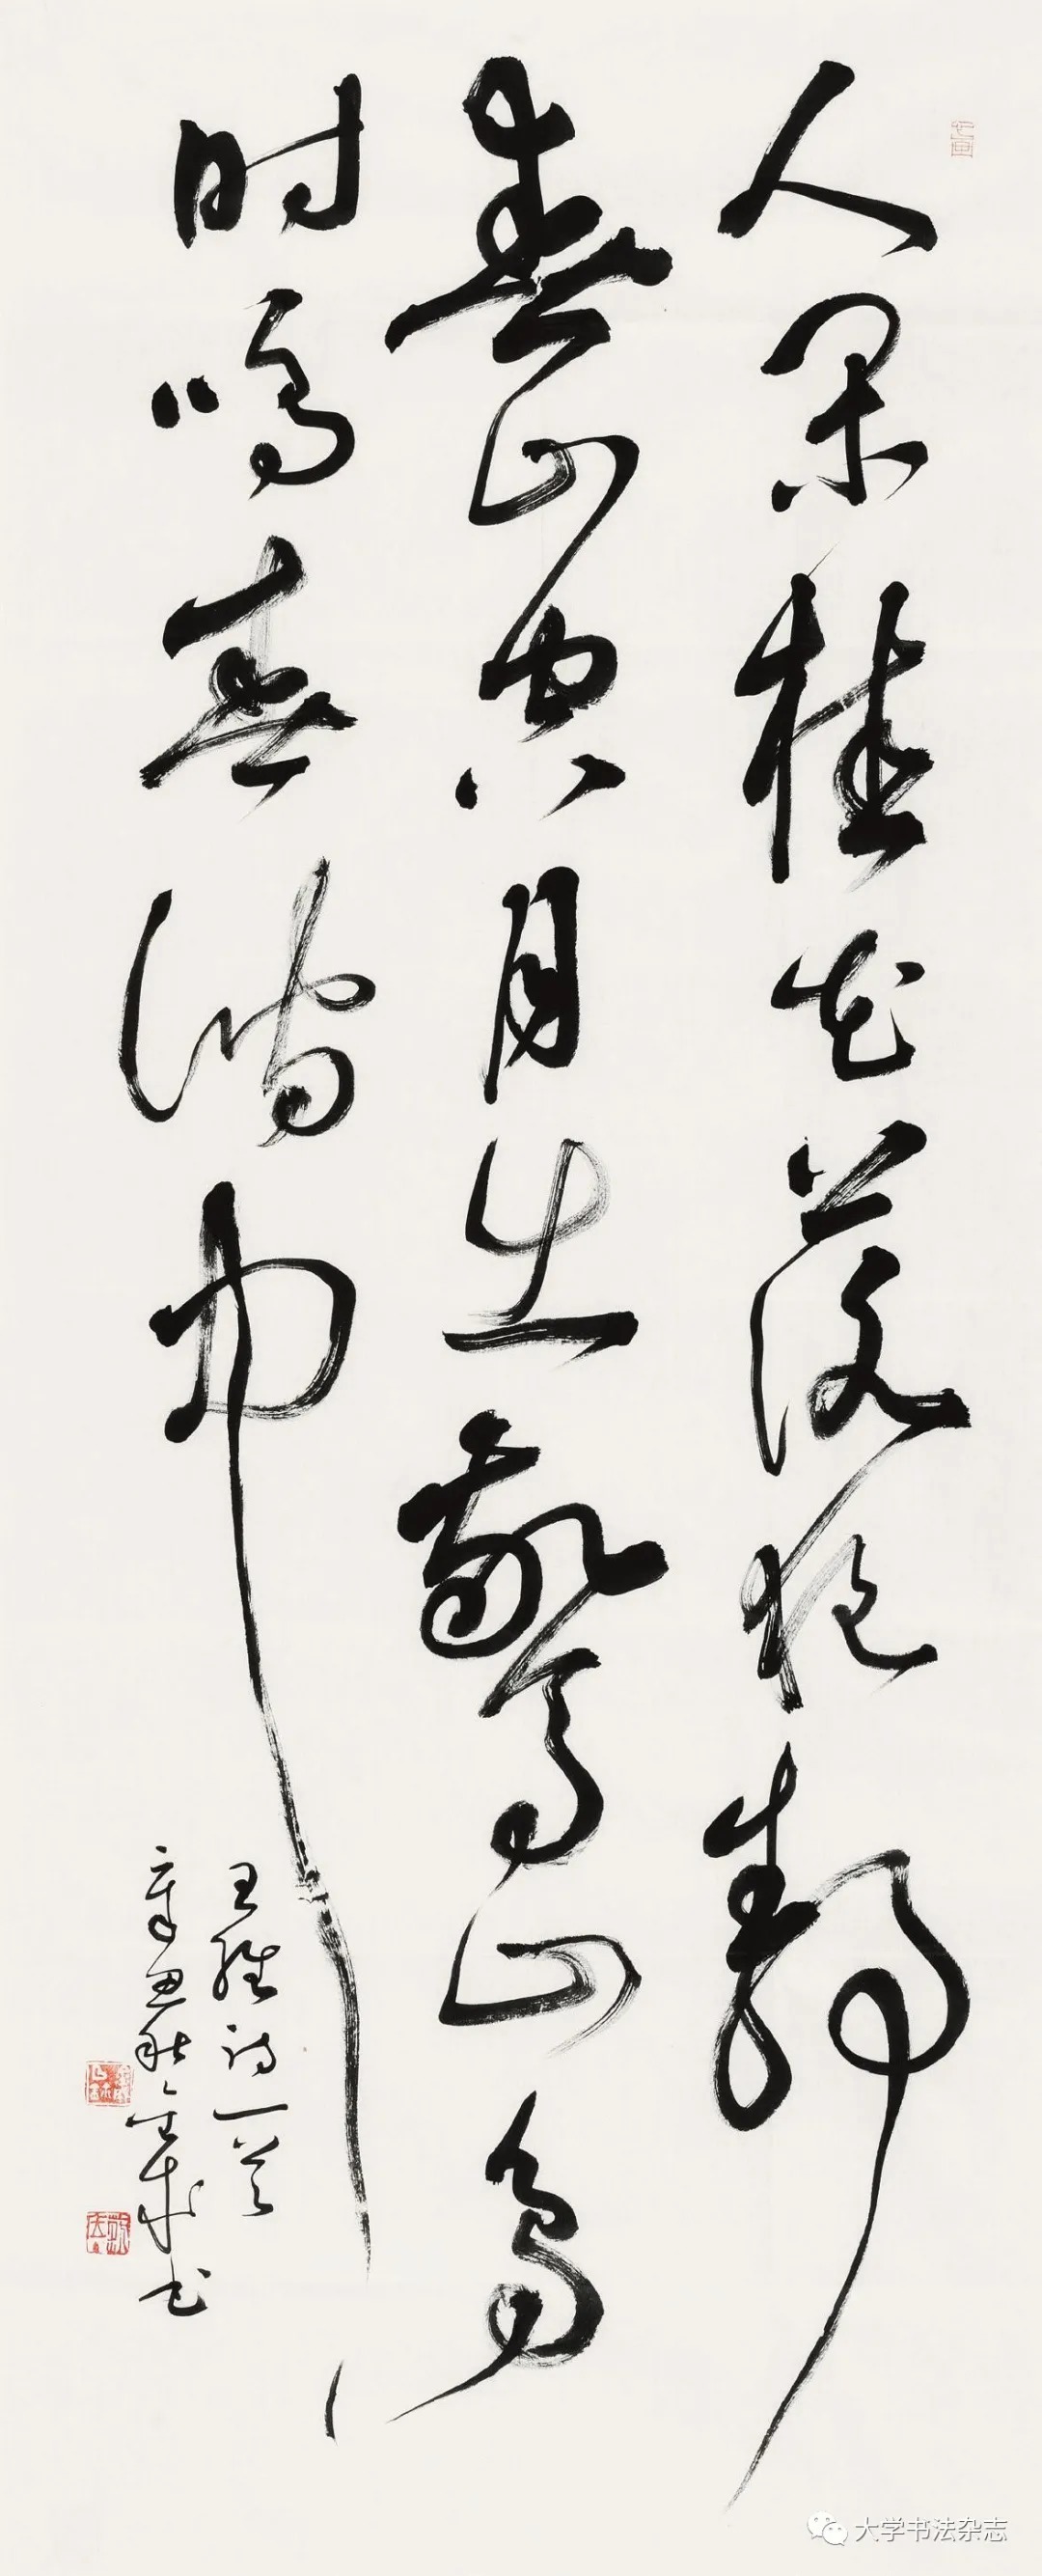 人闲桂花落夜静
春山空月出驚山鸟
时鸣春涧中
王维诗一首
辛丑秋书
大学书法杂志